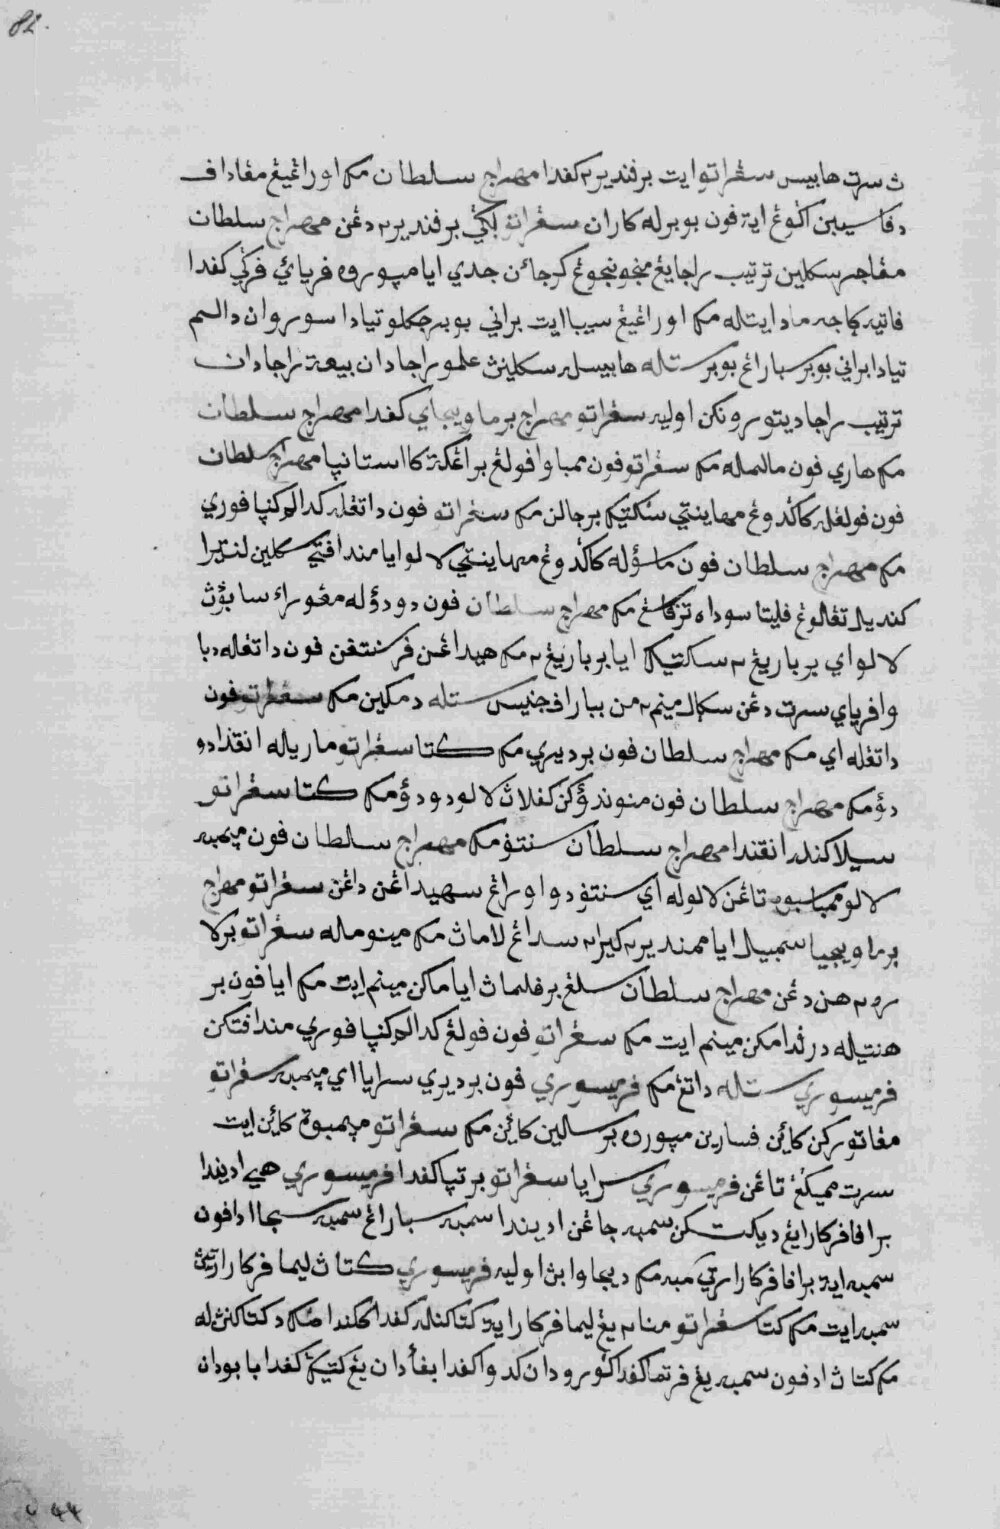 82.
ث سرت هابيس سڠراتو ايت برفنديرم كفدا مهراج سلطان مک اورڠيڠ مڠاداف
دفاسيبن اڬوڠ ايت فون بوبرله كاران سڠراتو لاكي برفنديرم دڠن مهراج سلطان
مڠاجر سكلين ترتيب راجايڠ منجونجوڠ كرجاءن جدي ايا مپوروه فرپاي كفدا
مک اورڠيڠ سيبا ايت براني بوبر
تيادا براني بوبر سباراڠ بوبر ستله هابيسله سكلين علمو راجا دان بيعة راجا دان
ترتيب راجا ديتورونكن اوليه سڠراتو مهراج برماويجاي كفدا مهراج سلطان
مک هاري فون مالمله مک سڠراتو فون ممباوا فولڠ براڠكة كااستانيا مهراج سلطان
فون فولڠله كاكدوڠ مهاينتي سڬتيك برجالن مک سڠراتو فون داتڠله كدالم كنيا فوري
مک مهراج سلطان فون ماسؤله كاكدوڠ مهاينتي لالو ايا مندافتي سكلين لنتيرا
كنديل تڠلوڠ فليتا سوداه ترفاسڠ مک مهراج سلطان فون دودؤله مڠوراء سابؤڽ
لالو اي برباريڠ٢ سكتيك ايا برباريڠ٢ مک هيداڠن فرسنتفن فون داتڠله دبا
وا فرپاي سرت دڠن سكل مينم٢ من ببراف جنيس ستله دمكين مک سڠراتو فون
داتڠله اي مک مهراج سلطان فون برديري مک كتا سڠراتو ماريله انقدا دو
دؤ مک مهراج سلطان فون منوندؤكن كفلاڽ لالو دودؤ مک كتا سڠراتو
سيلاكنله انقندا مهراج سلطان سنتؤ مک مهراج سلطان فون ميمبه
لالو ممباسوه تاڠن لالوله اي سنتؤ دوا اورڠ سهيداڠن داڠن سڠراتو مهراج
برماويجيا سمبيل ايا ممنديرم كيرا٢ سداڠ لاماڽ مک مينوماله سڠراتو برلا
ره٢هن دڠن مهراج سلطان سلڠ برفلماڽ ايا ماكن مينم ايت مک ايا فون بر
هنتيله درفدا مكن مينم ايت مک سڠراتو فون فولڠ كدالم كنيا فوري مندافتكن
فرميسوري ستله داتڠ مک فرميسوري فون برديري سرايا اي ميمبه سڠراتو
مڠاتوركن كائن فسالين مپوروه برسالين كائن مک سڠراتو ميمبوة كائن ايت
سرت مميڬڠ تاڠن فرميسوري سرايا سڠراتو برتپ كفدا فرميسوري هي اديندا
براف فركارايڠ ديكتاكن سمبه جاڠن اديندا سمبه سباراڠ سمبه سهجا ادافون
سمبه ايت براف فركارا ارتي مک ديجاوابڽ اوليه فرميسوري كتاڽ ليما فركارا ارتيڽ
سمبه ايت مک كتا سڠراتو مناله يڠ ليما فركارا ايت كتاكنله كفدا ككندا مک دكتاكنڽله
مک كتاڽ ادفون سمبه يڠ فرتما كفدا ڬورو دان كدوا كفدا بفأ دان يڠ كتيڬ كفدا ايبو دان